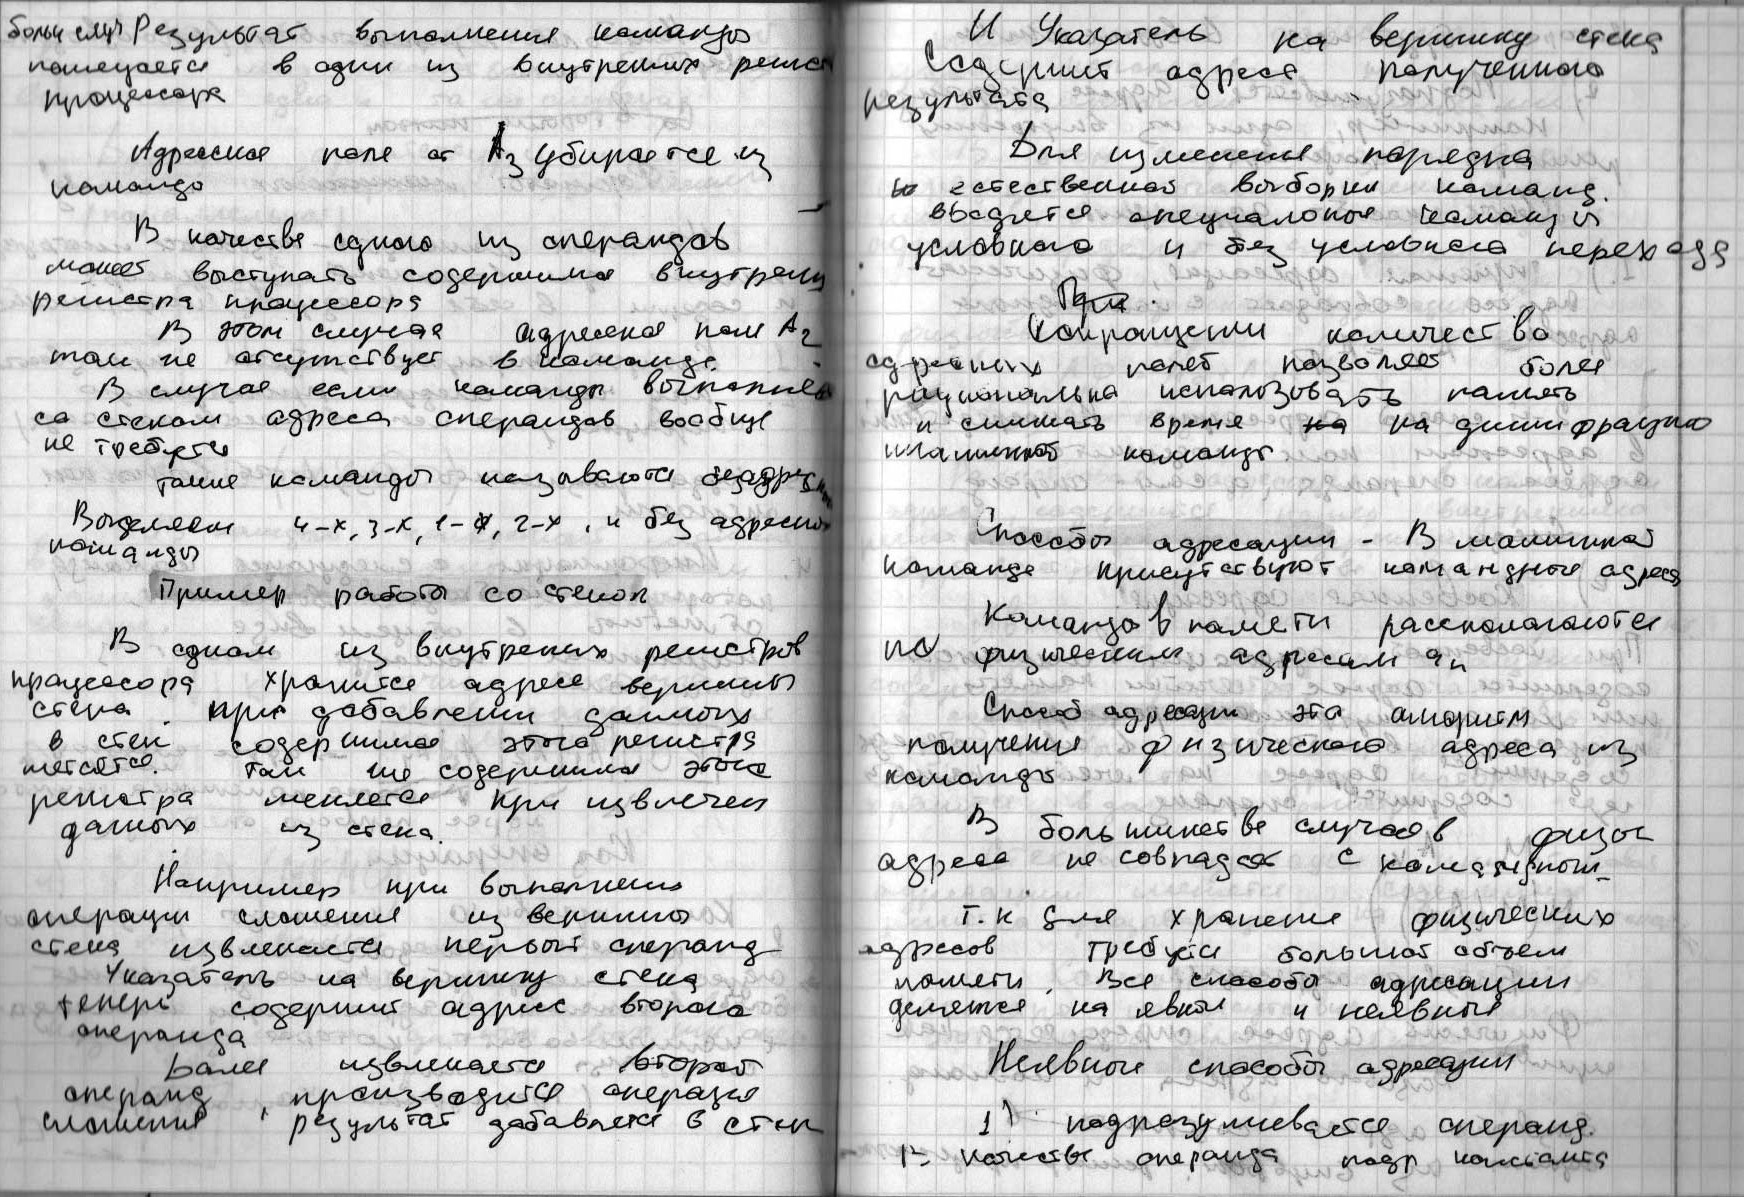 больш случ Результат выполнения команды
помещается в один из внутренних регист
процессора
Адресное поле от A3 убирается из
команды
В качестве одного из операндов
может выступать содержимое внутренн
регистра процессора
В этом случае адресное поле A2
так же отсутствует в команде.
В случае если команды выполняе
со стеком адреса операндов вообще
не требуется
такие команды называются безадресн
Выделяем 4-х, 3-х, 1-, 2-х, и без адресные
команды
Пример работы со стеком
В одном из внутрених регистров
процессора хранится адрес вершины
стека. при добавлении данных
в стек содержимое этого регистра
меняется. Так же содержимое этого
регистра меняется при извлечен
данных из стека.
Например при выполнении
операции сложения из вершины
стека извлекается первый операнд
Указатель на вершину стека
теперь содержит адрес второго
операнда
Далее извлекается второй
операнд, производится операция
сложения, результат добавляется в стек
И Указатель на вершину стека
Содержит адрес полученного
результата
Для изменения порядка
естественной выборки команд.
вводятся специальные команды
условного и без условного перехода
При.
Сокращении количество
адресных полей позволяет более
рационально использовать память
и снижать время на на дешифрацию
машинной команды
Способы адресации - В машинной
команде присутствуют командные адреса
Команды в памяти рассполагаются
по физическим адресам
Способ адресации это алгоритм
получения физического адреса из
команды
В большинстве случаев физич
адреса не совпадает с командным
т.к для хранение физических
адресов требуется большой объем
памяти. Все способы адресации
делятся на явные и неявные
Неявные способы адресации
1) подразумевается операнд.
В качестве операнда подр константа